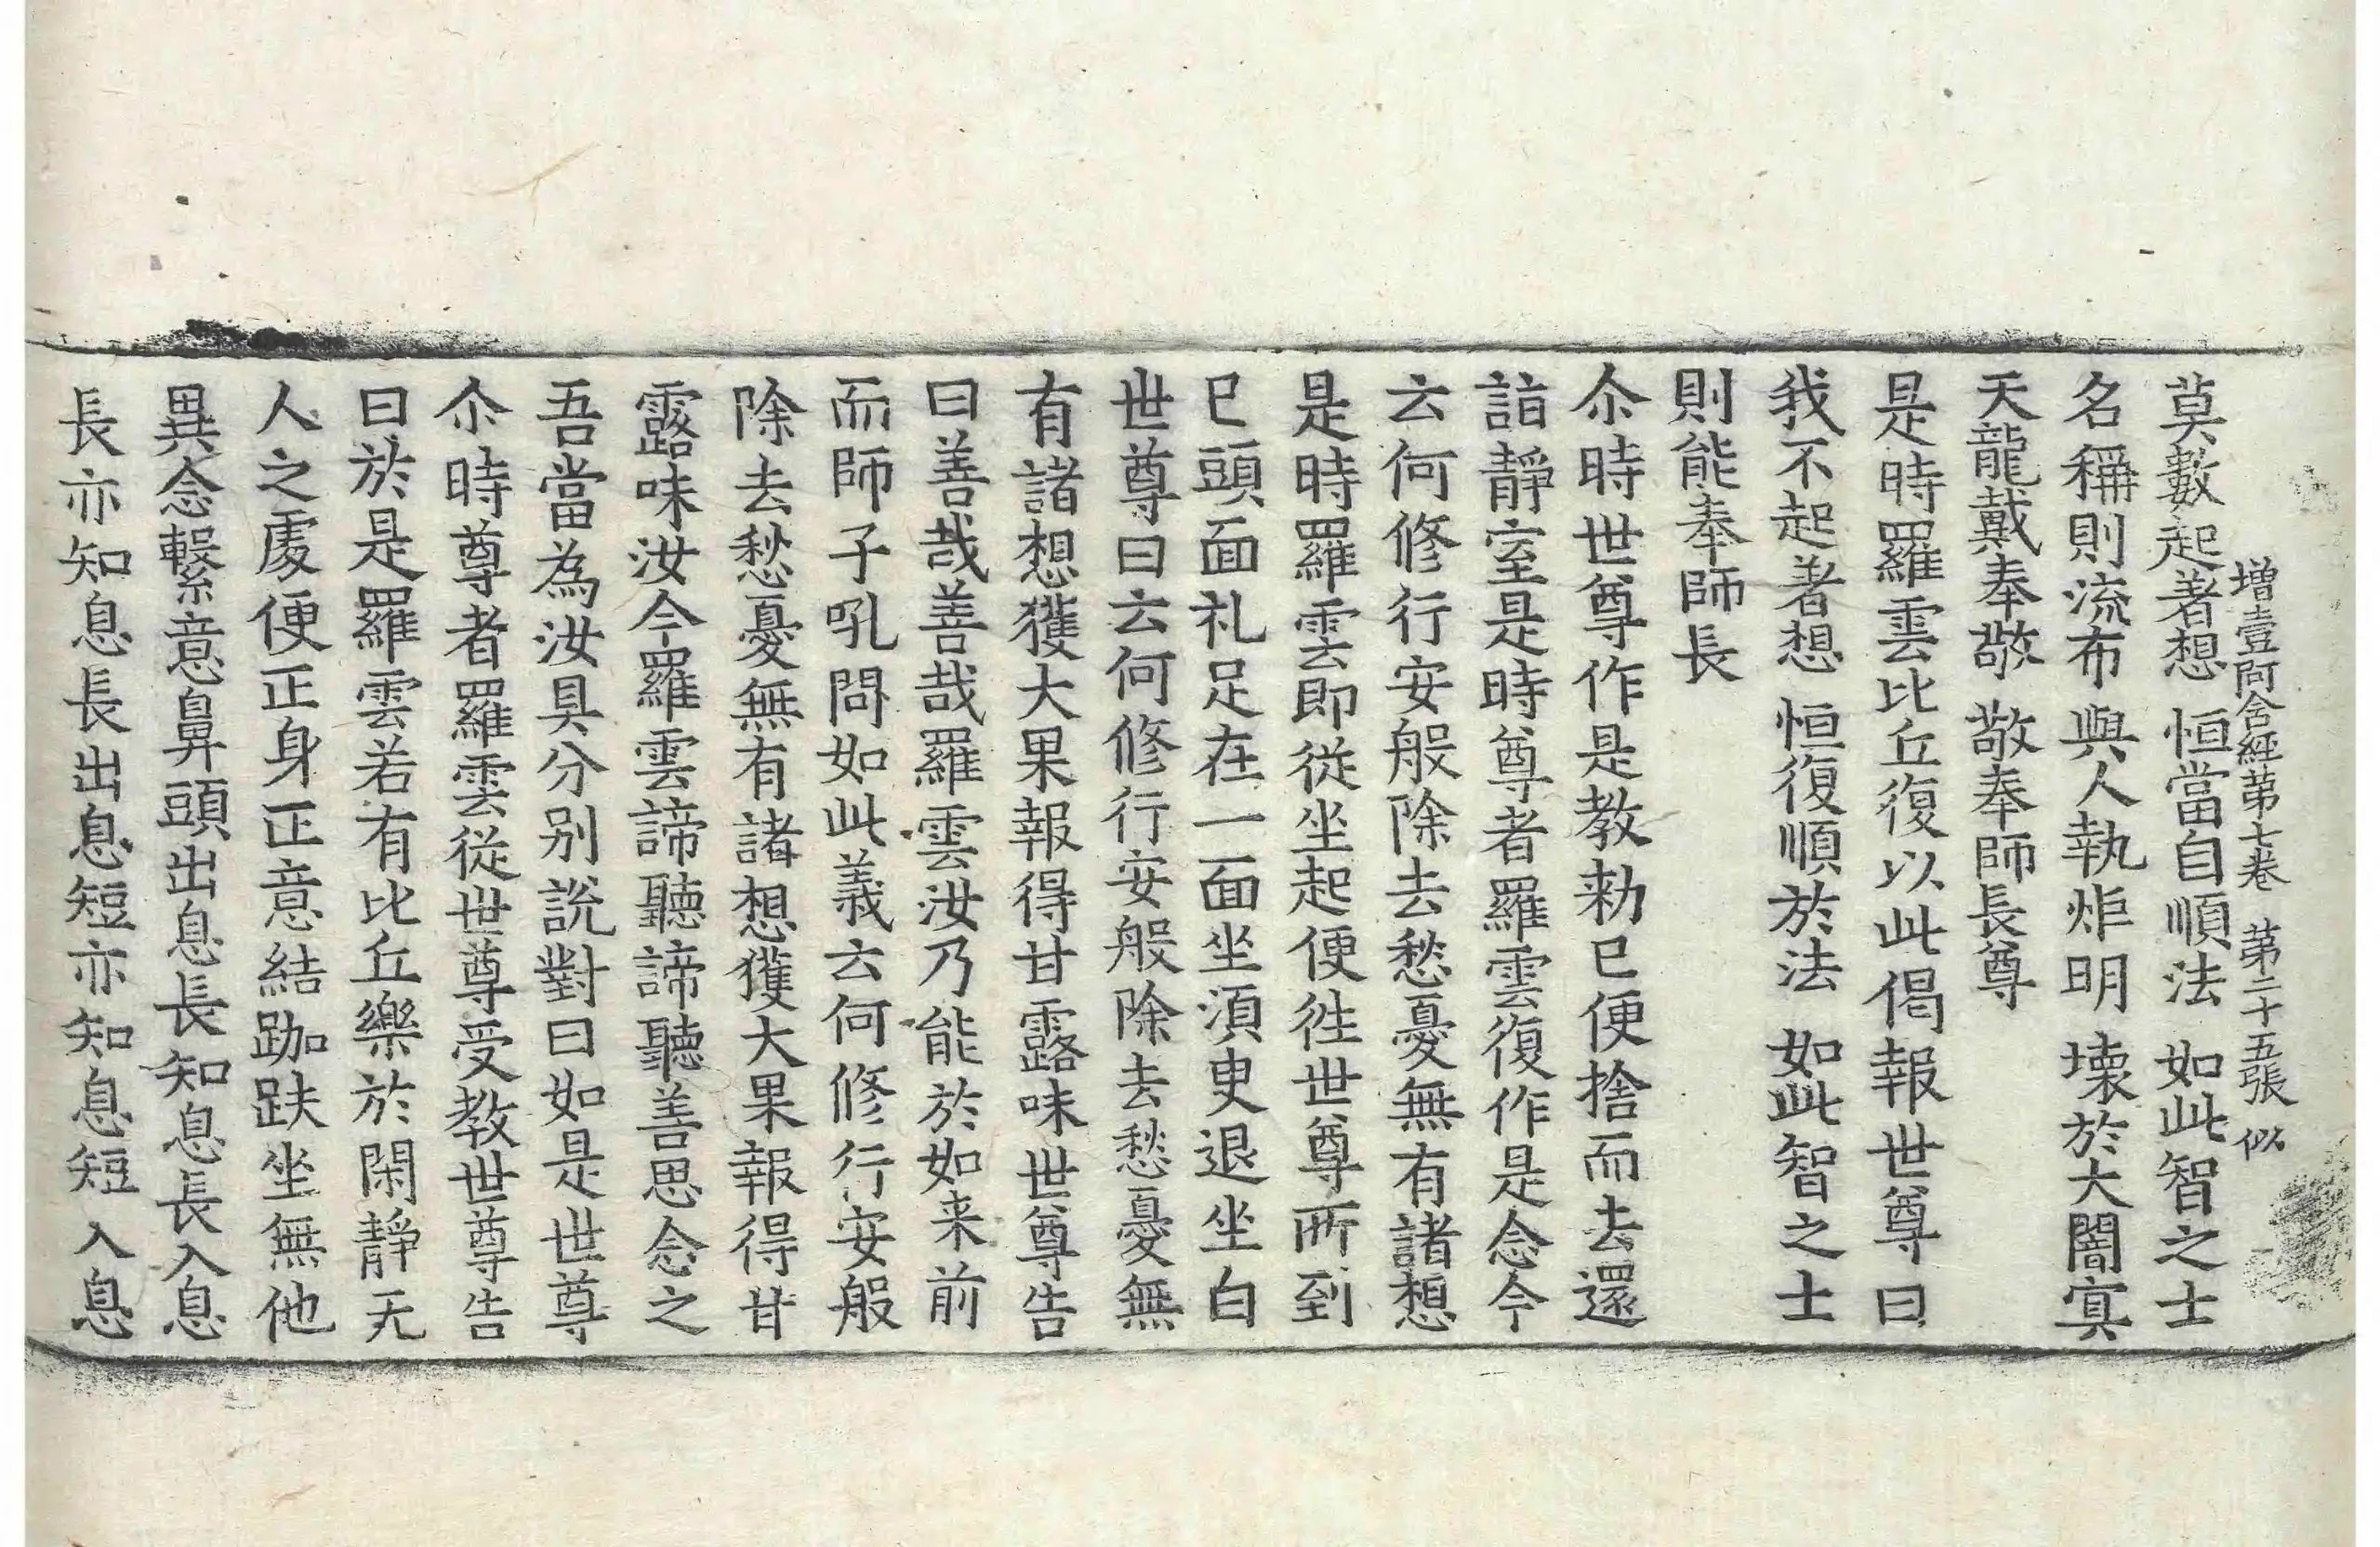 增壹阿含經第七卷　第二十五張　似
莫數起著想　恒當自順法　如此智之士
名稱則流布　與人執炬明　壞於大闇冥
天龍戴奉敬　敬奉師長尊
是時羅雲比丘復以此偈報世尊曰
我不起著想　恒復順於法　如此智之士
則能奉師長
尒時世尊作是教勑已便捨而去還
詣靜室是時尊者羅雲復作是念今
云何修行安般除去愁憂無有諸想
是時羅雲即從坐起便往世尊所到
已頭面礼足在一面坐須臾退坐白
世尊曰云何修行安般除去愁憂無
有諸想獲大果報得甘露味世尊告
曰善哉善哉羅雲汝乃能於如来前
而師子吼問如此義云何修行安般
除去愁憂無有諸想獲大果報得甘
露味汝今羅雲諦聽諦聽善思念之
吾當為汝具分別說對曰如是世尊
尒時尊者羅雲從世尊受教世尊告
曰於是羅雲若有比丘樂於閑靜无
人之處便正身正意結跏趺坐無他
異念繫意鼻頭出息長知息長入息
長亦知息長出息短亦知息短入息